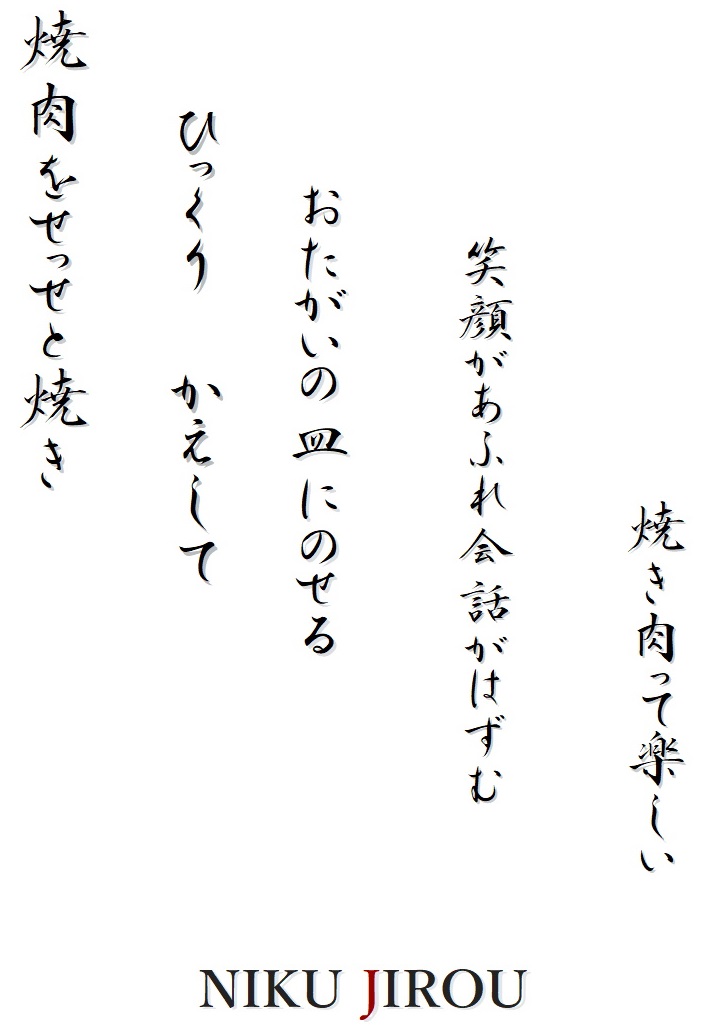 焼肉をせっせと焼き
ひっくり　かえして
おたがいの皿にのせる
笑顔があふれ会話がはずむ
焼き肉って楽しい
NIKU JIROU